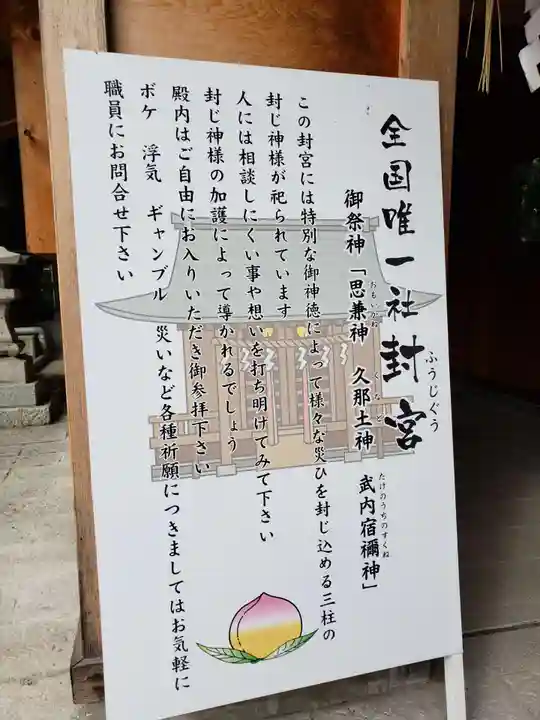 全国唯一社封宮
ふうじぐう
御祭神「思兼神 久那土神 武内宿禰神」
おもいかね
くなど
たけのうちのすくね
この封宮には特別な御神徳によって様々な災ひを封じ込める三柱の
封じ神様が祀られています
人には相談しにくい事や想いを打ち明けてみて下さい
封じ神様の加護によって導かれるでしょう
殿内はご自由にお入りいただき御参拝下さい
ボケ 浮気 ギャンブル 災いなど各種祈願につきましてはお気軽に
職員にお問合せ下さい